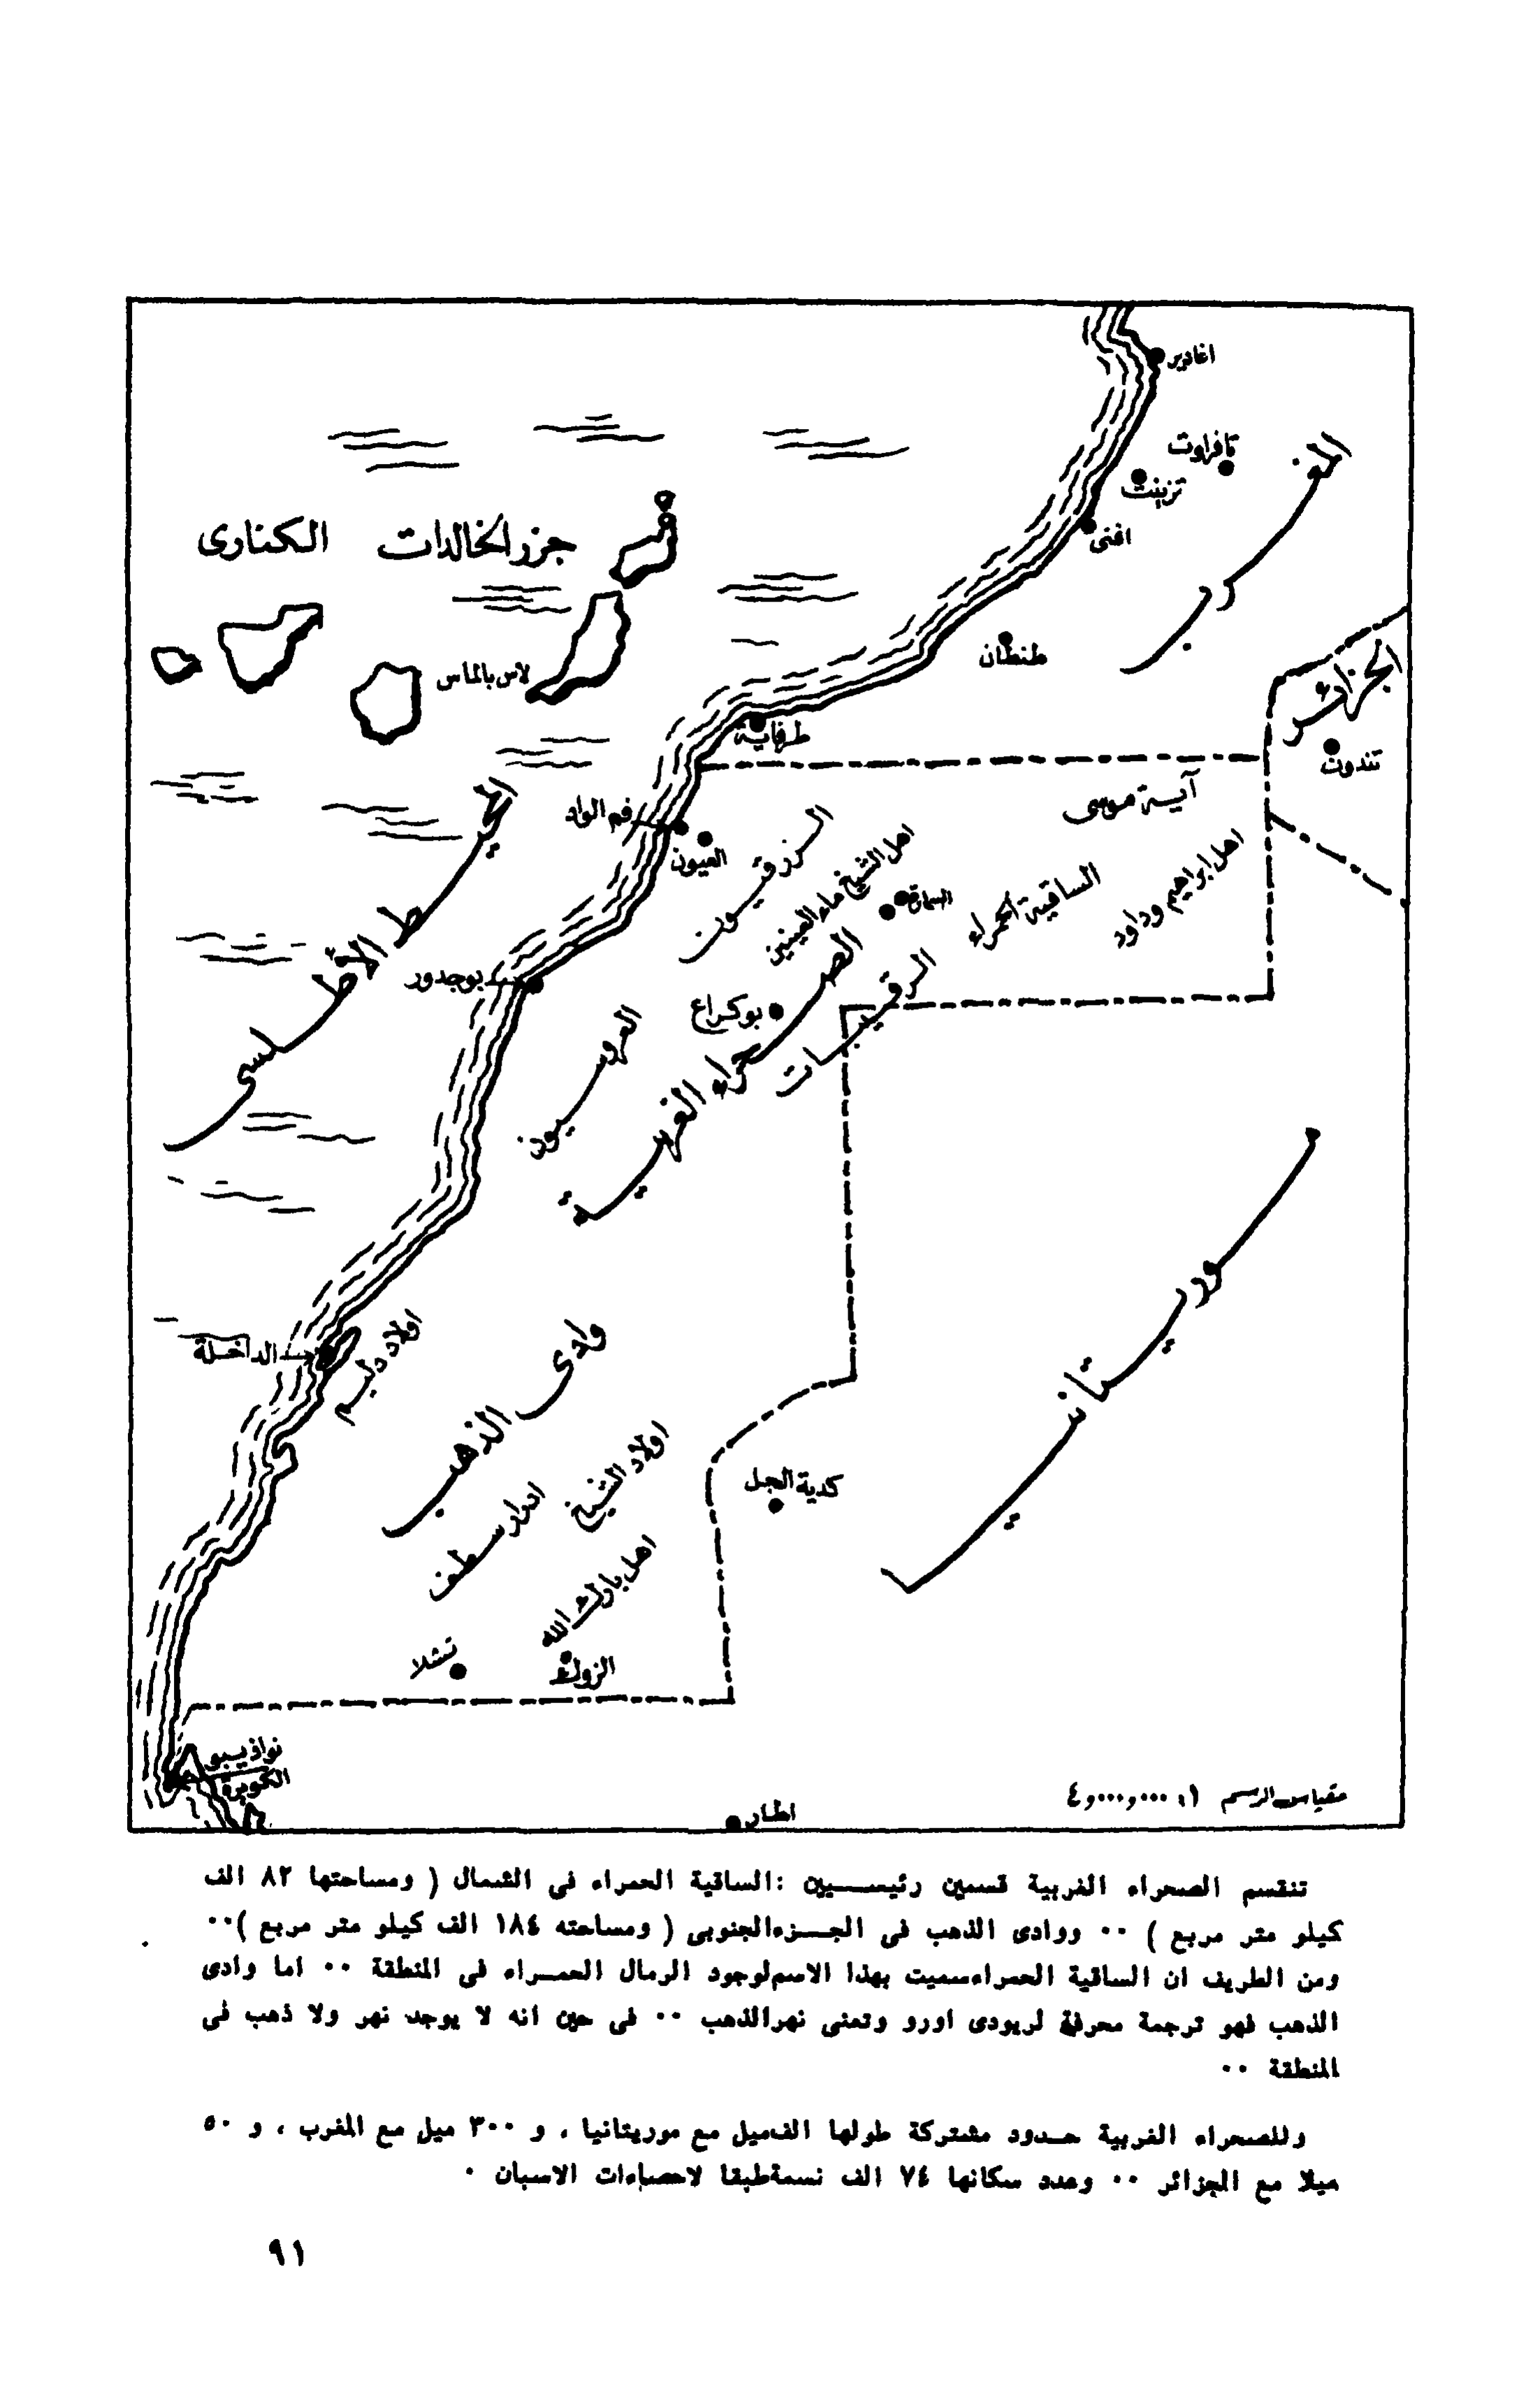 اغادير
تافراوت
تزنيت
المغرب
افنى
جزر الخالدات الكنارى
طنطان
لاس بالماس
الجزائر
طرفاية
تندوف
آيت موسى
المحيط الأطلسى
فم الواد
العيون
الزرقيون
اهل الشيخ ماء العينين
السمارة
الساقية الحمراء
اهل ابراهيم وداود
بوجدور
بوكراع
الرقيبات
العروسيون
الصحراء الغربية
موريتانيا
الداخلة
اولاد دليم
وادى الذهب
اولاد الشيخ
كدية الجل
اهل بارك الله
تشلا
الزوك
نواذيبو
الكويرة
اطار
مقياس الرسم ١: ٤,٠٠٠,٠٠٠
تنقسم الصحراء الغربية قسمين رئيسيين :الساقية الحمراء فى الشمال ( ومساحتها ٨٢ الف
كيلو متر مربع ) ٠٠ ووادى الذهب فى الجزءالجنوبى ( ومساحته ١٨٤ الف كيلو متر مربع )٠٠
ومن الطريف ان الساقية الحمراءسميت بهذا الاسملوجود الرمال الحمراء فى المنطقة ٠٠ اما وادى
الذهب فهو ترجمة محرفة لريودى اورو وتعنى نهرالذهب ٠٠ فى حين انه لا يوجد نهر ولا ذهب فى
المنطقة ٠٠
وللصحراء الغربية حدود مشتركة طولها الفميل مع موريتانيا ، و ٣٠٠ ميل مع المغرب ، و ٥٠
ميلا مع الجزائر ٠٠ وعدد سكانها ٧٤ الف نسمةطبقا لاحصاءات الاسبان ٠
٩١